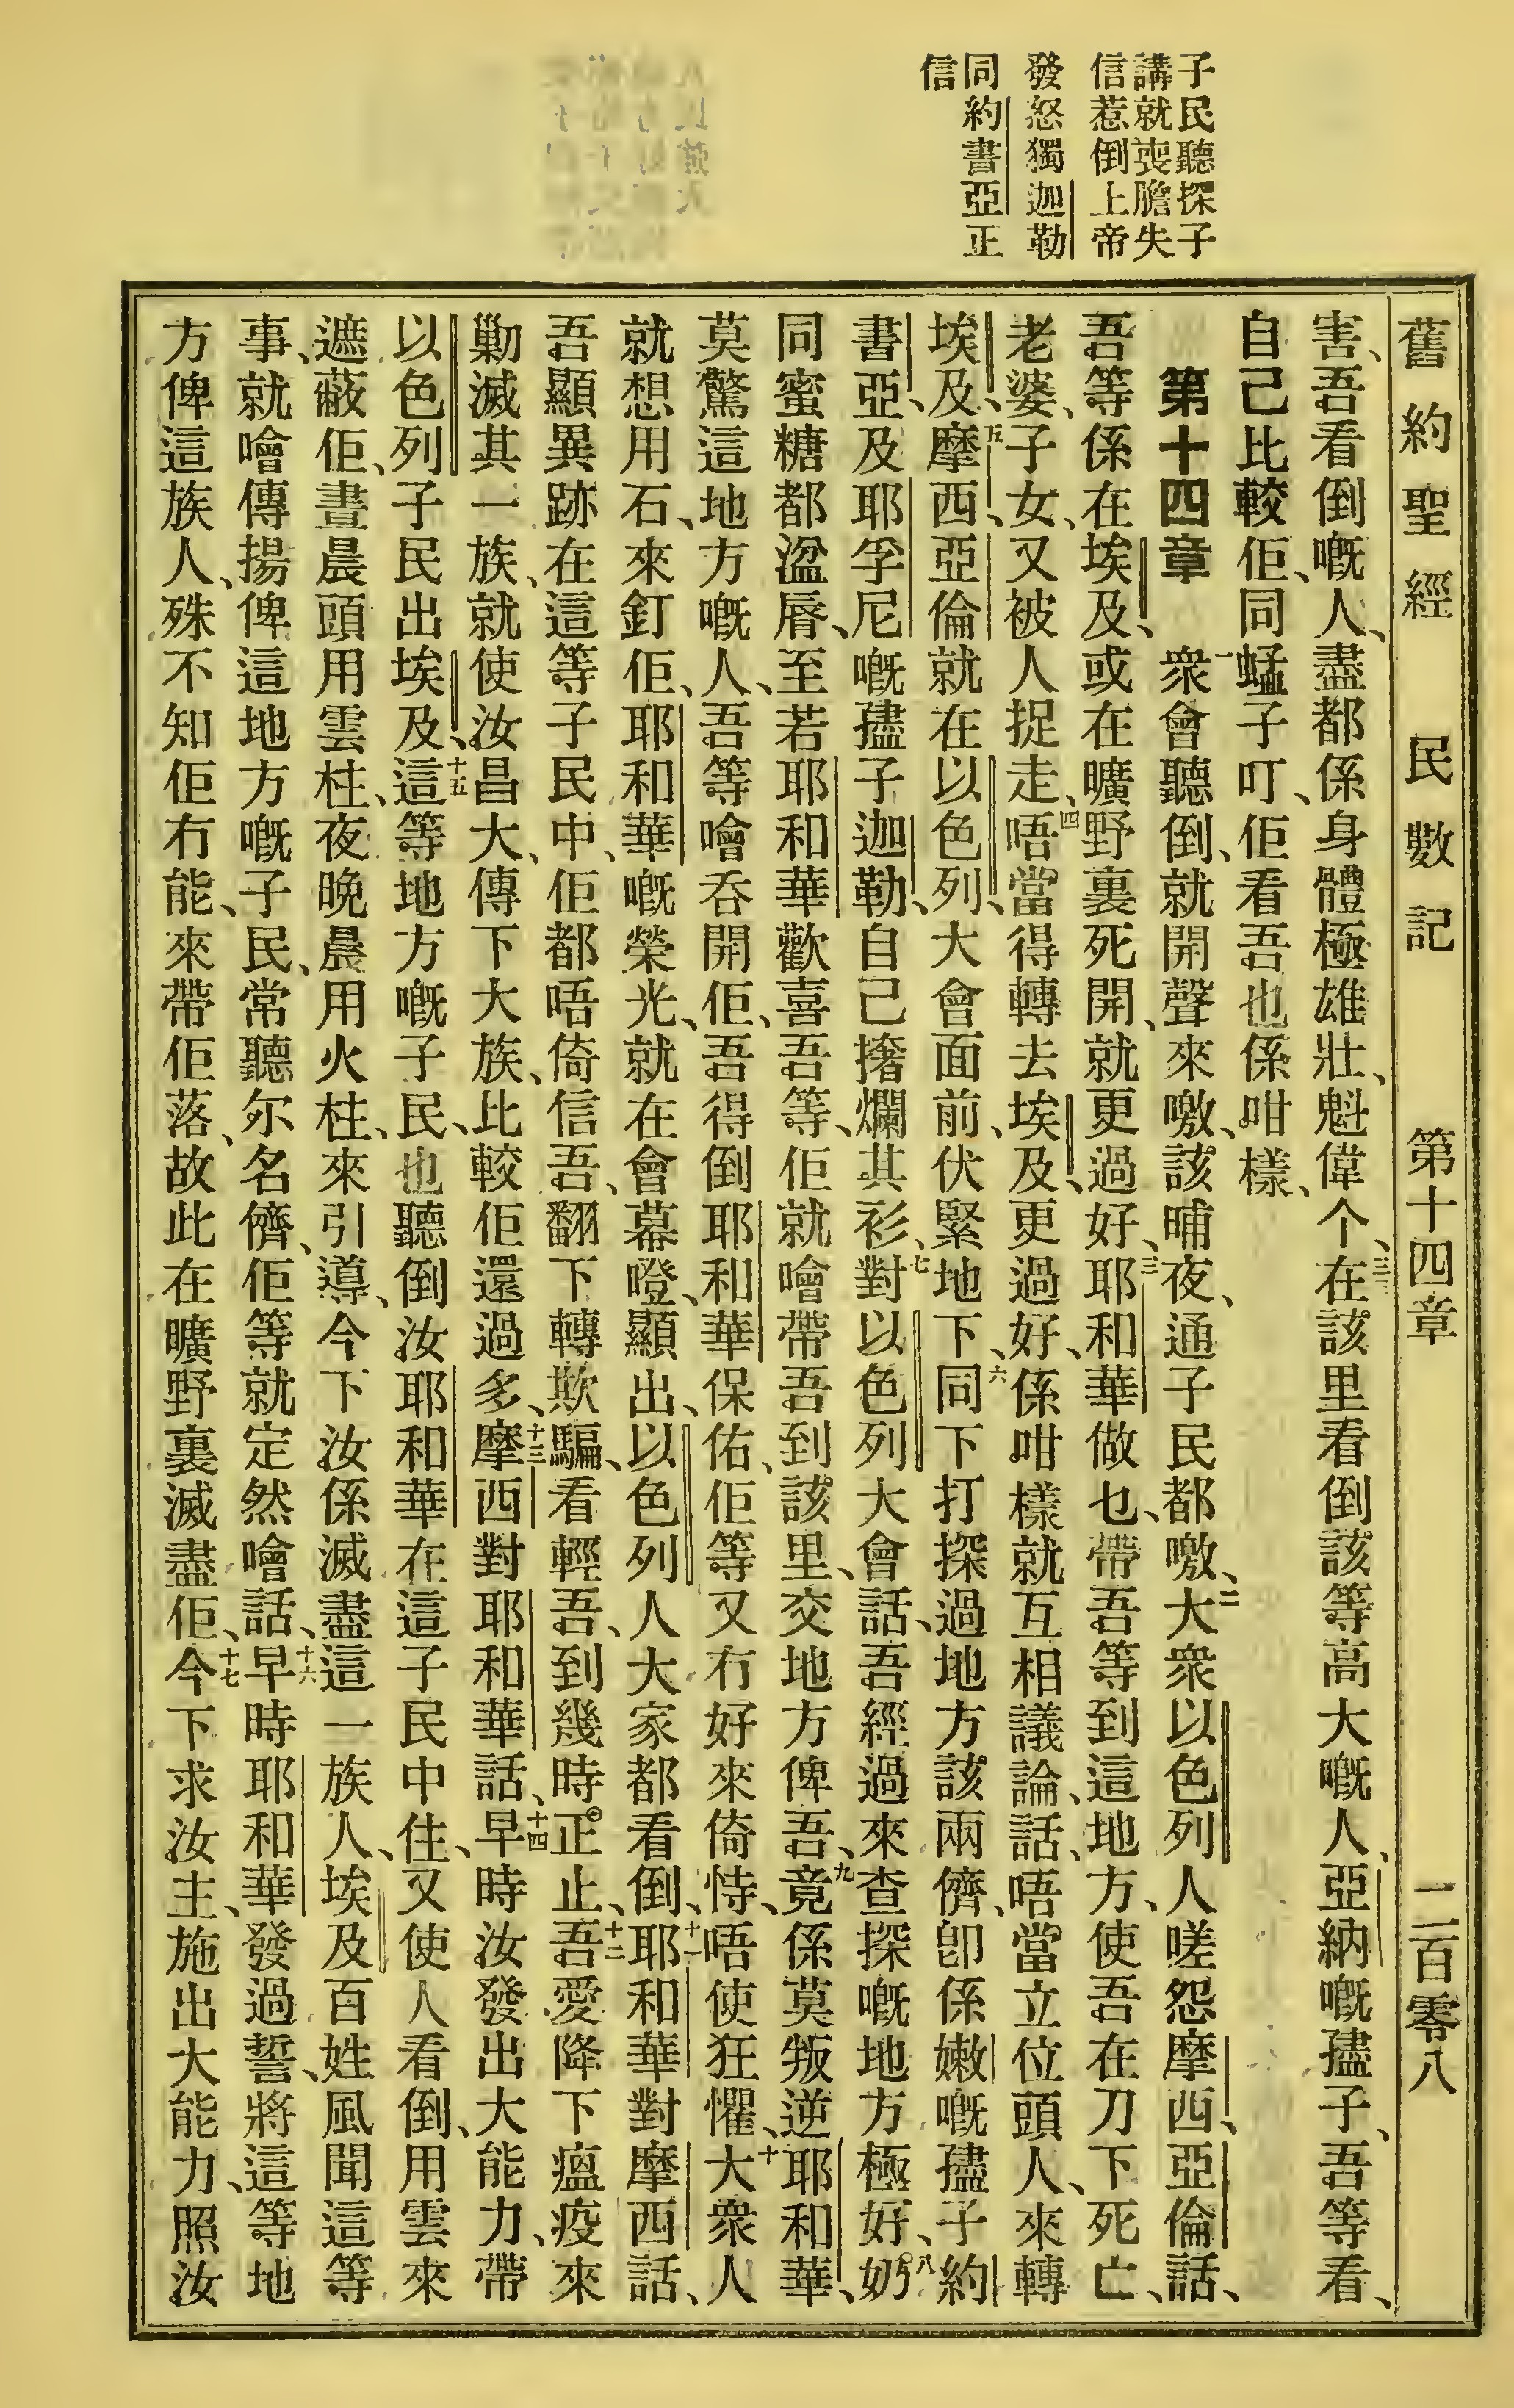 子民聽探子
講就喪膽失
信惹倒上帝
發怒獨迦勒
同約書亞正
信
舊約聖經 民數記 第十四章 二百零八
害、吾看倒嘅人、盡都係身體極雄壯、魁偉个、三三在該里看倒該等高大嘅人、亞納嘅孻子、吾等看、
自己比較佢、同蜢子叮、佢看吾也係咁樣、
第十四章 一衆會聽倒、就開聲來噭、該晡夜、通子民都噭、二大衆以色列人嗟怨摩西、亞倫話、
吾等係在埃及、或在曠野裏死開、就更過好、三耶和華做乜、帶吾等到這地方、使吾在刀下死亡、
老婆、子女、又被人捉走、唔當得轉去埃及、更過好、四係咁樣就互相議論、話、唔當立位頭人、來轉
埃及、五摩西、亞倫就在以色列、大會面前、伏緊地下、六同下打探過地方該兩儕、卽係嫩嘅孻子約
書亞、及耶孚尼嘅孻子迦勒、自己撦爛其衫、七對以色列大會話、吾經過來查探嘅地方極好、八奶
同蜜糖都溋脣、至若耶和華歡喜吾等、佢就噲帶吾到該里、交地方俾吾、九竟係莫叛逆耶和華、
莫驚這地方嘅人、吾等噲呑開佢、吾得倒耶和華保佑、佢等又冇好來倚恃、唔使狂懼、十大衆人
就想用石、來釘佢、耶和華嘅榮光、就在會幕嶝、顯出、以色列人大家都看倒、十一耶和華對摩西話、
吾顯異跡在這等子民中、佢都唔倚信吾、翻下轉欺騙、看輕吾、到幾時正止、十二吾愛降下瘟疫來
勦滅其一族、就使汝昌大、傳下大族、比較佢還過多、十三摩西對耶和華話、十四早時汝發出大能力、帶
以色列子民出埃及、十五這等地方嘅子民、也聽倒汝耶和華在這子民中住、又使人看倒、用雲來
遮蔽佢、晝晨頭用雲柱、夜晚晨用火柱、來引導、今下汝係滅盡這一族人、埃及百姓風聞這等
事、就噲傳揚俾這地方嘅子民、常聽尔名儕、佢等就定然噲話、十六早時耶和華發過誓、將這等地
方俾這族人、殊不知佢冇能、來帶佢落、故此在曠野裏滅盡佢、十七今下求汝主、施出大能力、照汝